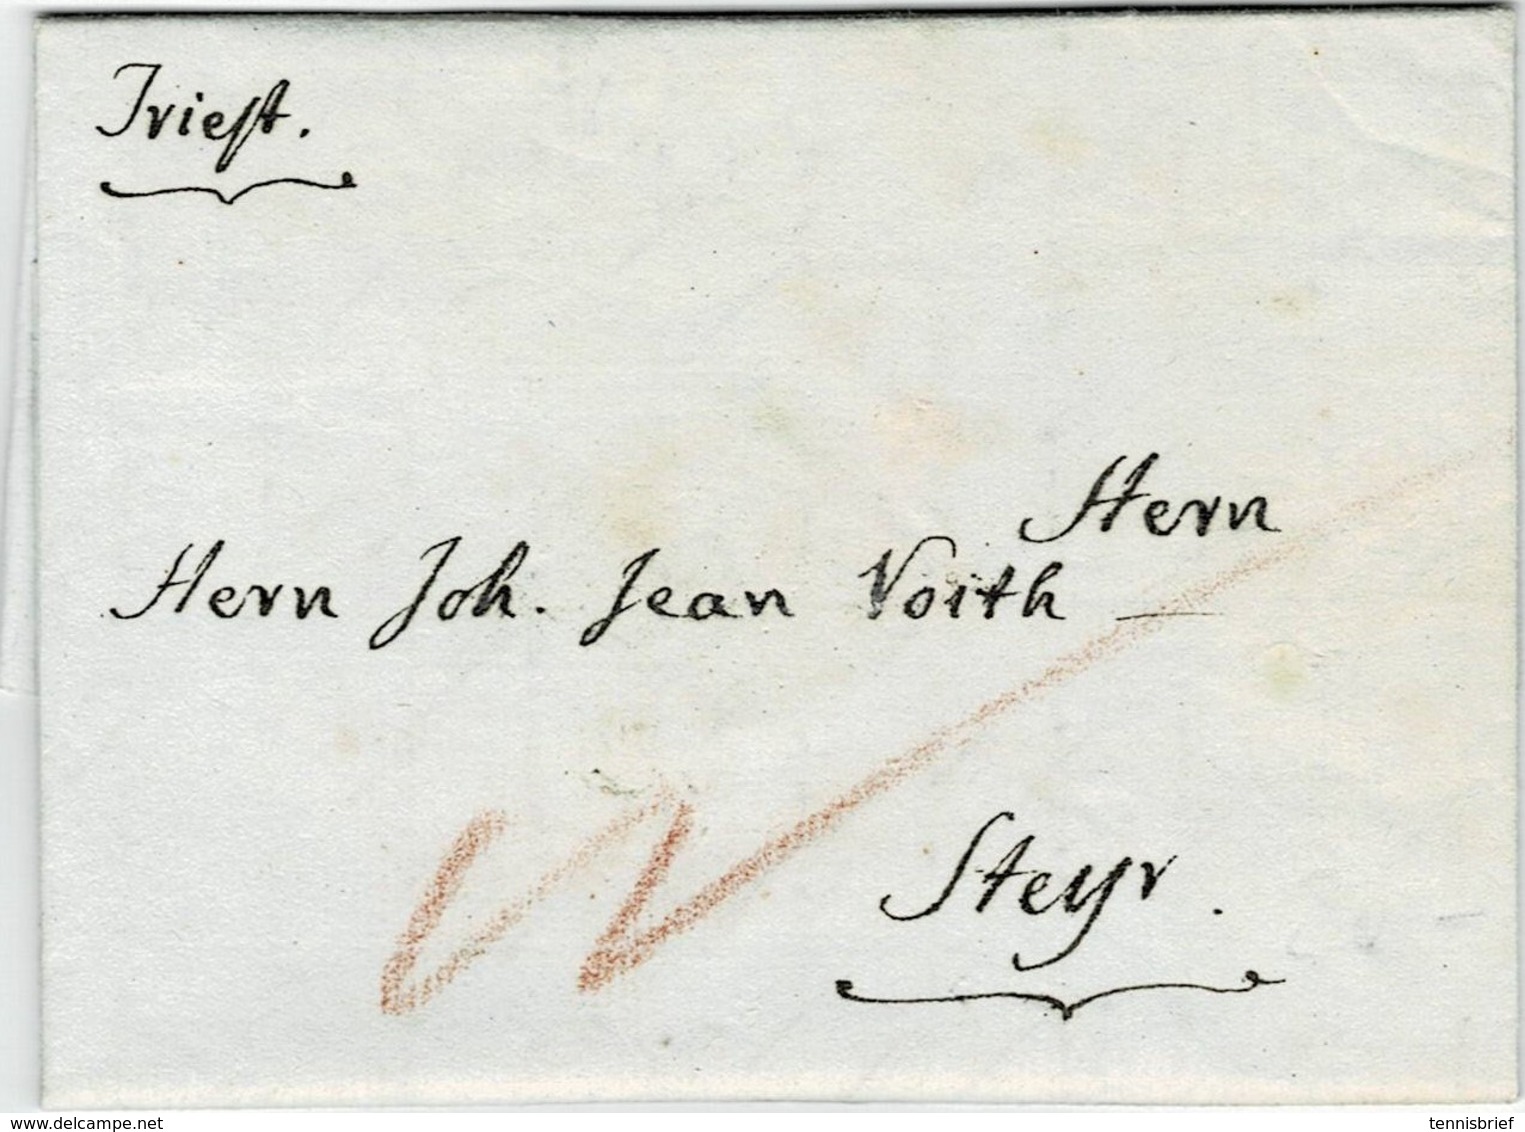 Triest.
Hern
Hern Joh. Jean Voith —
Steyr.
www.delcampe.net
tennisbrief